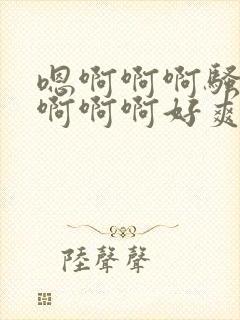 嗯啊啊啊騷
啊啊啊好爽
陸聲聲